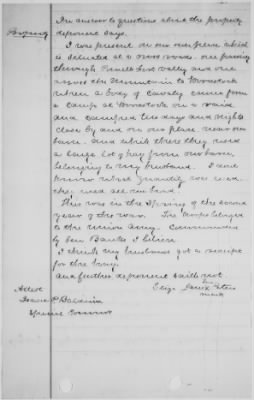 In answer to questions about the property
deponent says.
I was present on our own place which
is situated at a cross roads. one passing
through Powells Fort valley and one
across the Mountain to Woodstock
when a body of Cavalry came from
a camp at Woodstock on a raid
and camped two days and nights
close by and on our place near our
barn. and while there they used
a large lot of hay from our barn,
belonging to my husband. I dont
know what quantity was used.
they used all we had.
This was in the Spring of the second
year of the war. The troops belonged
to the Union Army. Commanded
by Gen Banks I believe
I think my husband got a receipt
for the hay.
and further deponent saith not.
Eliza her
mark
Attest
Isaac P Baldwin
Special Comr